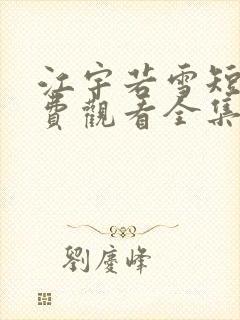 江宇若雪短
費觀看全集
劉慶峰